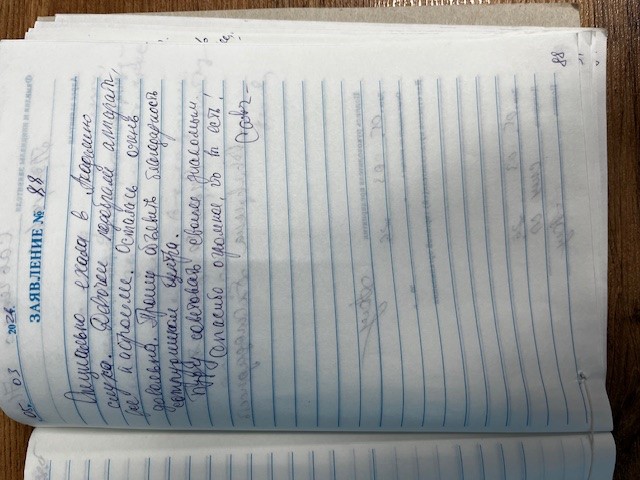 05 03 2026
ЗАЯВЛЕНИЕ № 88
Специально ехала в Академию
слуха. Девочки подобрали аппарат,
и настроили. Осталась очень
довольна. Прошу объявить благодарность
сотрудникам центра.
Буду советовать своим знакомым.
Спасибо огромное, что вы есть!
88